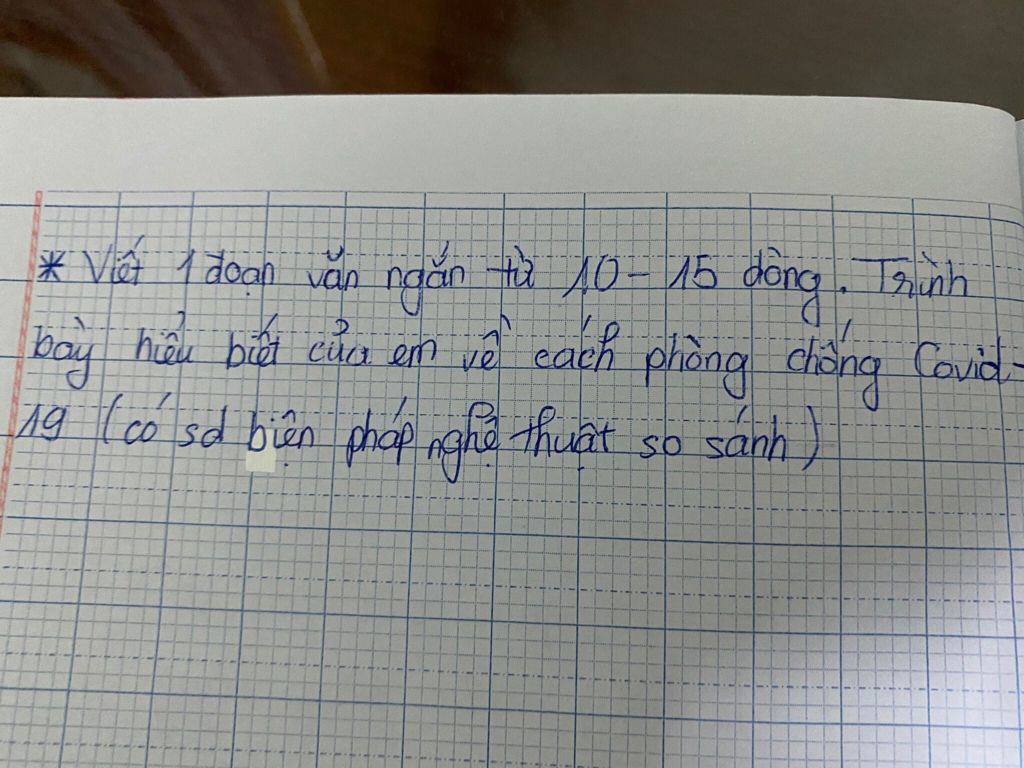 * Viết 1 đoạn văn ngắn từ 10 - 15 dòng. Trình
bày hiểu biết của em về cách phòng chống Covid-
19 (có sd biện pháp nghệ thuật so sánh)